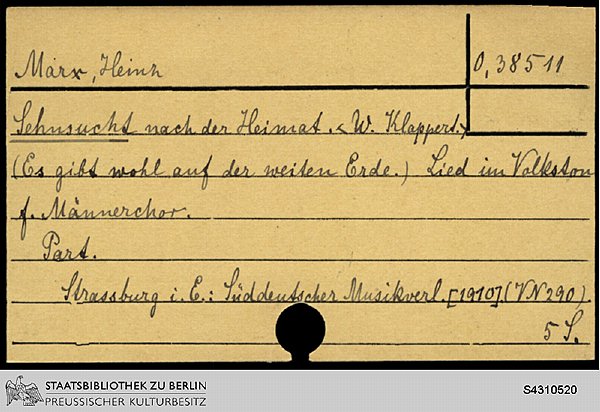 Marx, Heinz
O, 38511
Sehnsucht nach der Heimat. <W. Klappert.>
(Es gibt wohl auf der weiten Erde.) Lied im Volkston
f. Männerchor.
Part.
Strassburg i. E.: Süddeutscher Musikverl. [1910] (VN 290).
5 S.
STAATSBIBLIOTHEK ZU BERLIN
PREUSSISCHER KULTURBESITZ
S4310520